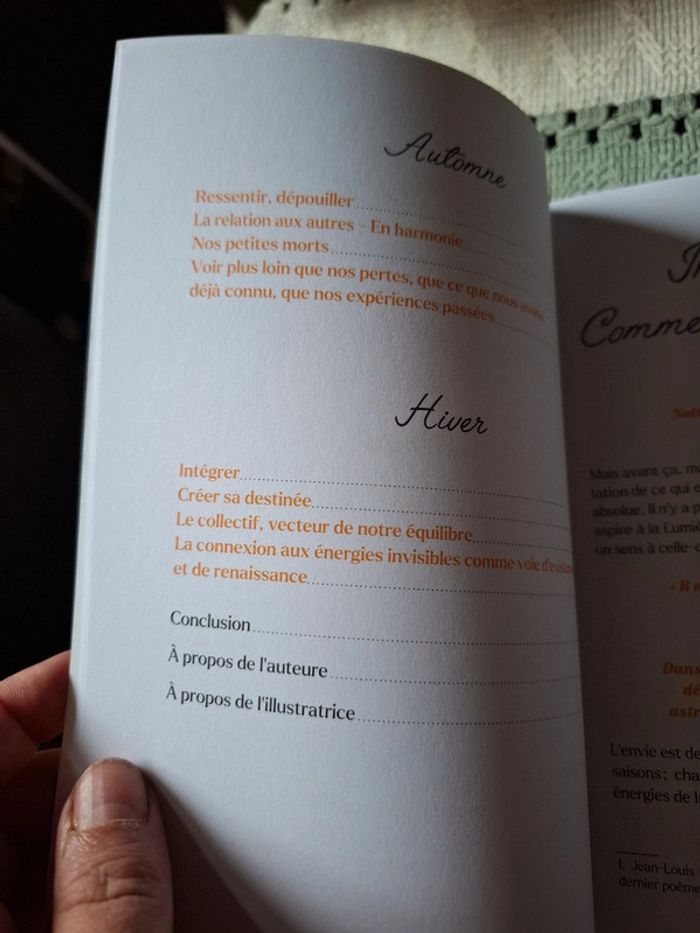 Automne
Ressentir, dépouiller
La relation aux autres – En harmonie
Nos petites morts
Voir plus loin que nos pertes, que ce que nous avons
déjà connu, que nos expériences passées
Hiver
Intégrer
Créer sa destinée
Le collectif, vecteur de notre équilibre
La connexion aux énergies invisibles comme voie
et de renaissance
Conclusion
À propos de l'auteure
À propos de l'illustratrice
Comme
Mais avant ça,
tation de ce qui
absolue. Il n'y a
aspire à la Lumiè
un sens à celle-c
« Il
Dans
dé
astr
L'envie est de
saisons ; cha
énergies de l
1. Jean-Louis
dernier poème